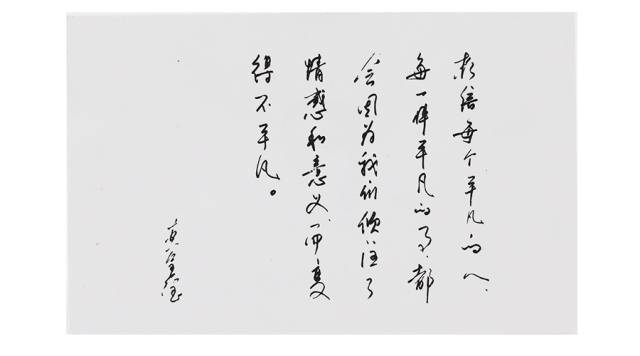 信每个平凡的人、
每一件平凡的事，都
会因为我们倾注了
情感和意义，而变
得不平凡。